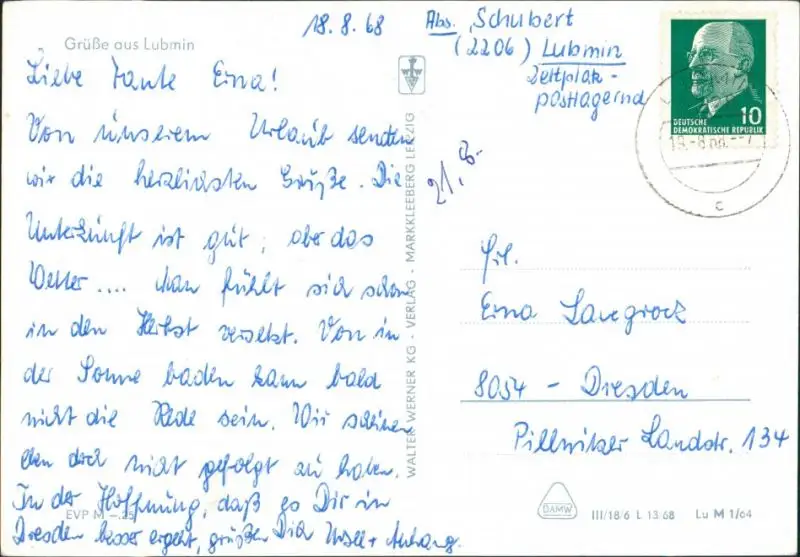 18.8.68
Abs. Schubert
(2206) Lubmin
Zeltplatz-
postlagernd
10
DEUTSCHE
DEMOKRATISCHE REPUBLIK
19.-8.68.--7
c
Grüße aus Lubmin
Liebe Tante Erna!
Von unserem Urlaub senden
wir die herzlichsten Grüße. Die
Unterkunft ist gut, aber das
Wetter.... Man fühlt sich schon
in den Herbst versetzt. Von in
der Sonne baden kann bald
nicht die Rede sein. Wir scheinen
den doch nicht gefolgt zu haben.
In der Hoffnung, daß es Dir in
Dresden besser ergeht, grüßen Dich Ursel + Anhang.
21.8.
WALTER WERNER KG · VERLAG · MARKKLEEBERG LEIPZIG
Frl.
Erna Langrock
8054 - Dresden
Pillnitzer Landstr. 134
EVP M -.25
DAMW
III/18/6 L 13 68 Lu M 1/64